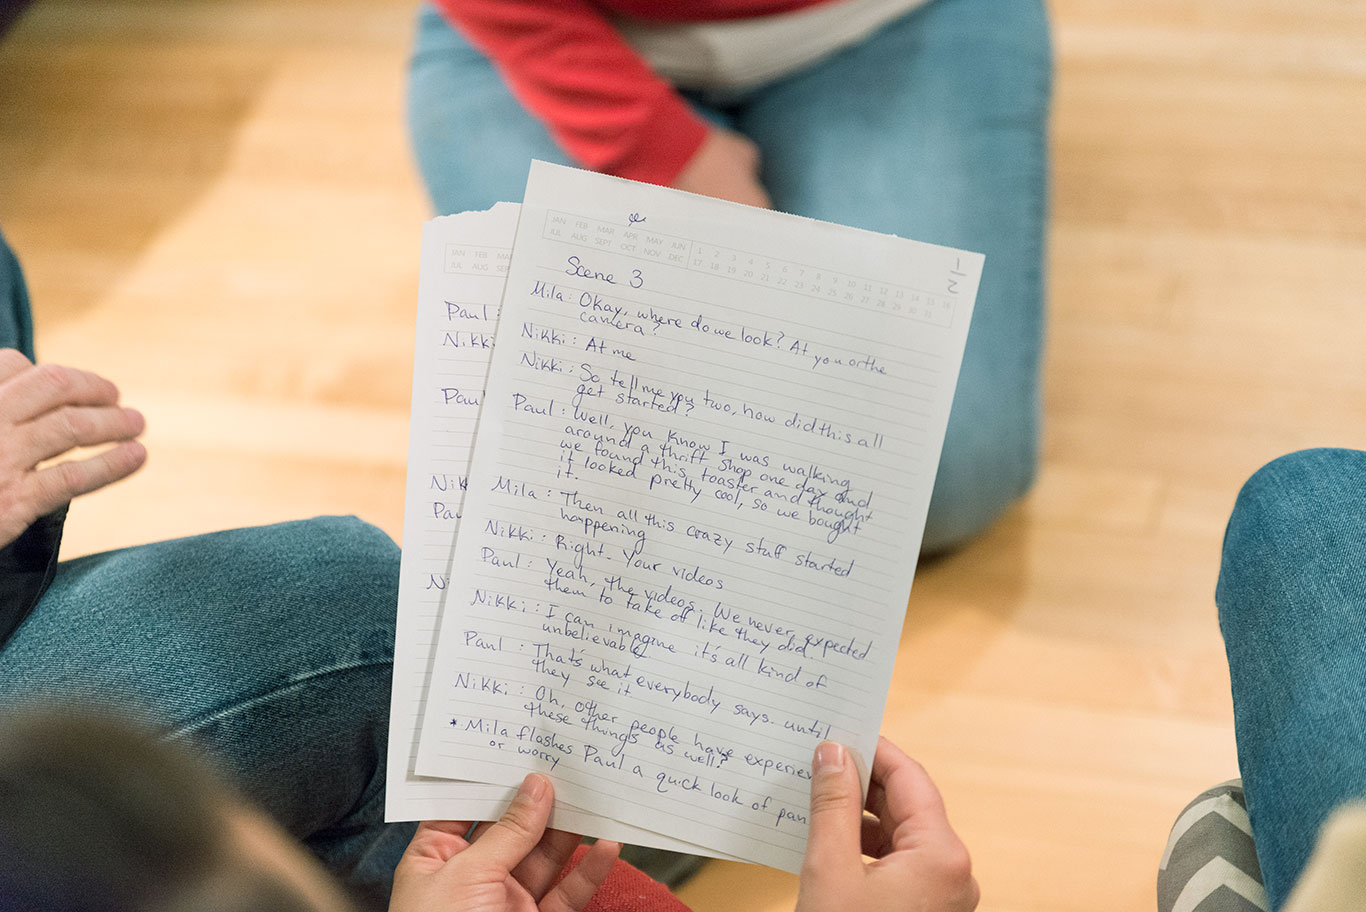 JAN FEB MAR APR MAY JUN 1 2 3 4 5 6 7 8 9 10 11 12 13 14 15 16
JUL AUG SEPT OCT NOV DEC 17 18 19 20 21 22 23 24 25 26 27 28 29 30 31
1/2
Scene 3
Mila: Okay, where do we look? At you or the
camera?
Nikki: At me
Nikki: So, tell me you two, how did this all
get started?
Paul: Well, you know I was walking
around a thrift shop one day and
we found this toaster and thought
it looked pretty cool, so we bought
it.
Mila: Then all this crazy stuff started
happening
Nikki: Right. Your videos
Paul: Yeah, the videos. We never expected
them to take off like they did.
Nikki: I can imagine it's all kind of
unbelievable
Paul: That's what everybody says. until
they see it
Nikki: Oh, other people have
these things as well?
* Mila flashes Paul a quick look of
or worry
JAN FEB
JUL AUG
Paul:
Nikki
Paul
Nikki